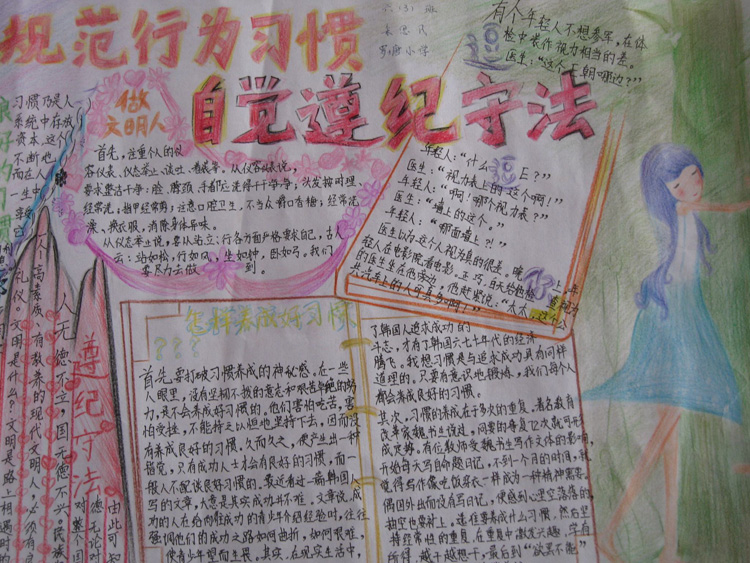 规范行为习惯
自觉遵纪守法
六(3)班
做
文明人
有个年轻人不想参军,在体
检中装作视力相当的差。
医生:“这个E朝哪边?”
年轻人:“什么E?”
医生:“视力表上的这个啊!”
年轻人:“啊!哪个视力表?”
医生:“墙上的这个。”
年轻人:“哪面墙上?!”
医生以为这个人视力真的很差。晚上,年
轻人在电影院看电影,正巧,白天给他检查视力
的医生坐在他旁边,他赶紧说:“太太,这个公
共汽车上的人可真多啊!”
首先,注重个人的仪
容仪表、仪态举止、谈吐、着装等。从仪容仪表说,
要求整洁干净:脸、脖颈、手都应洗得干干净净;头发按时理、
经常洗;指甲经常剪;注意口腔卫生,不当众嚼口香糖;经常洗
澡、换衣服,消除身体异味。
从仪态举止说,要从站立、行各方面严格要求自己,古人
云:站如松,行如风,坐如钟,卧如弓。我们
要尽力去做到。
良好的习惯
习惯乃是人
系统中存放
资本,这个
不断地
而在人
一生中
遵纪守法
人无德不立,国无德不兴。民族
个高素质、有教养的现代文明人,必须有
礼仪。文明是什么?文明是路上相遇时的
由此可知
德无论对
对整个国
怎样养成好习惯
???
首先,要打破习惯养成的神秘感。在一些
人眼里,没有坚韧不拔的意志和艰苦卓绝的努
力,是不会养成好习惯的。他们害怕吃苦,害
怕受挫,不能持之以恒地坚持下去,因而没
有养成良好的习惯。久而久之,便产生出一种
错觉,只有成功人士才会有良好的习惯,而一
般人不配谈良好的习惯。最近看过一篇韩国人
写的文章,大意是其实成功并不难。文章说,成
功的人在给向往成功的青少年介绍经验时,往往
强调他们的成功之路如何曲折,如何艰难,
使青少年望而生畏。其实,在现实生活中,
了韩国人追求成功的
斗志,才有了韩国六七十年代的经济
腾飞。我想习惯是与追求成功具有同样
道理的。只要有意识地锻炼,我们每个人
都会养成良好的习惯。
其次,习惯的养成在于多次的重复。著名教育
改革家魏书生说过,同要的每复72次就可形
成定势。有位教师受魏书生写作文体的影响,
开始每天写自命题日记,不到一个月的时间,我
觉得写作像吃饭穿衣一样成为一种精神需要。
偶因外出而没有写日记,便感到心里空落落的,
抽空也要补上。谨在要养成什么习惯,然后坚
持经常性的重复,在重复中激发兴趣,学有
所得,越干越想干,最后到“欲罢不能”